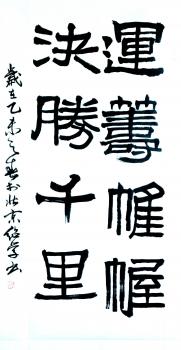 運籌帷幄
決勝千里
歲在乙未之春於北京